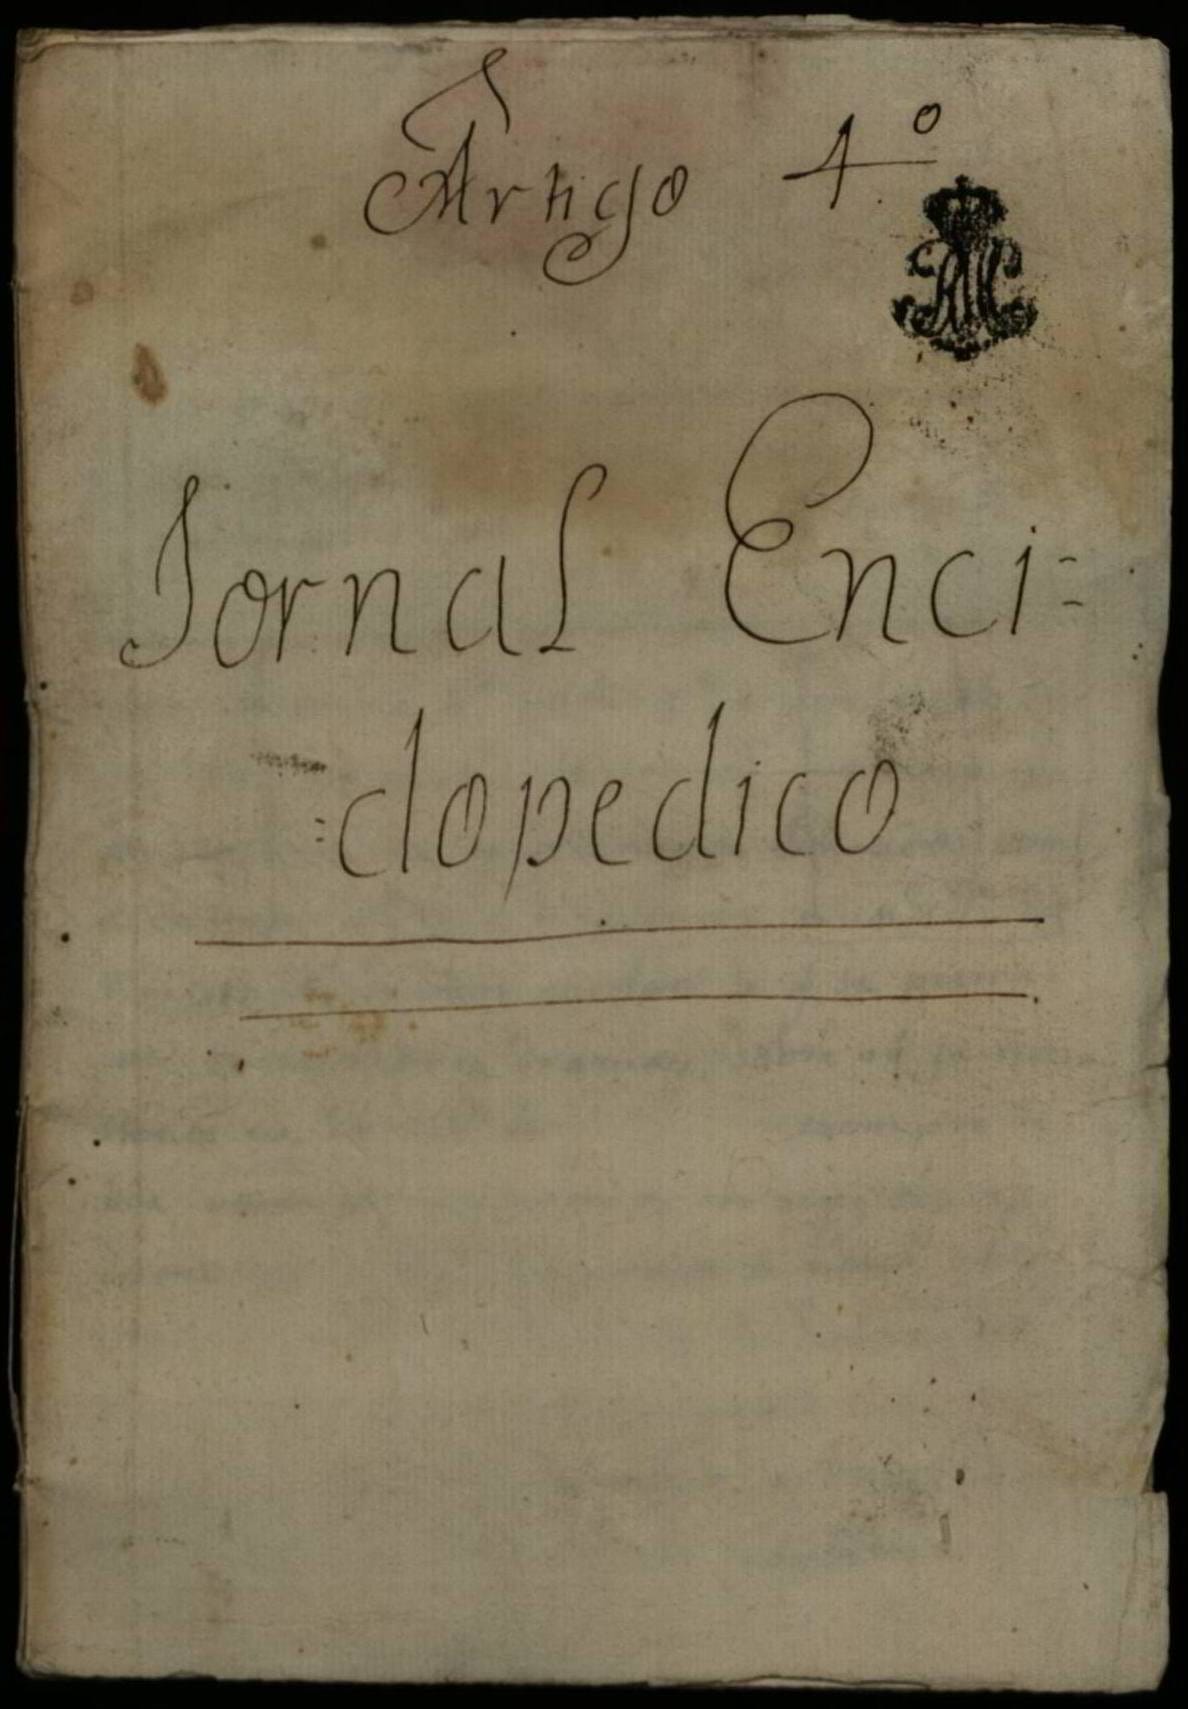 Artigo 4º
Jornal Enci=
=clopedico